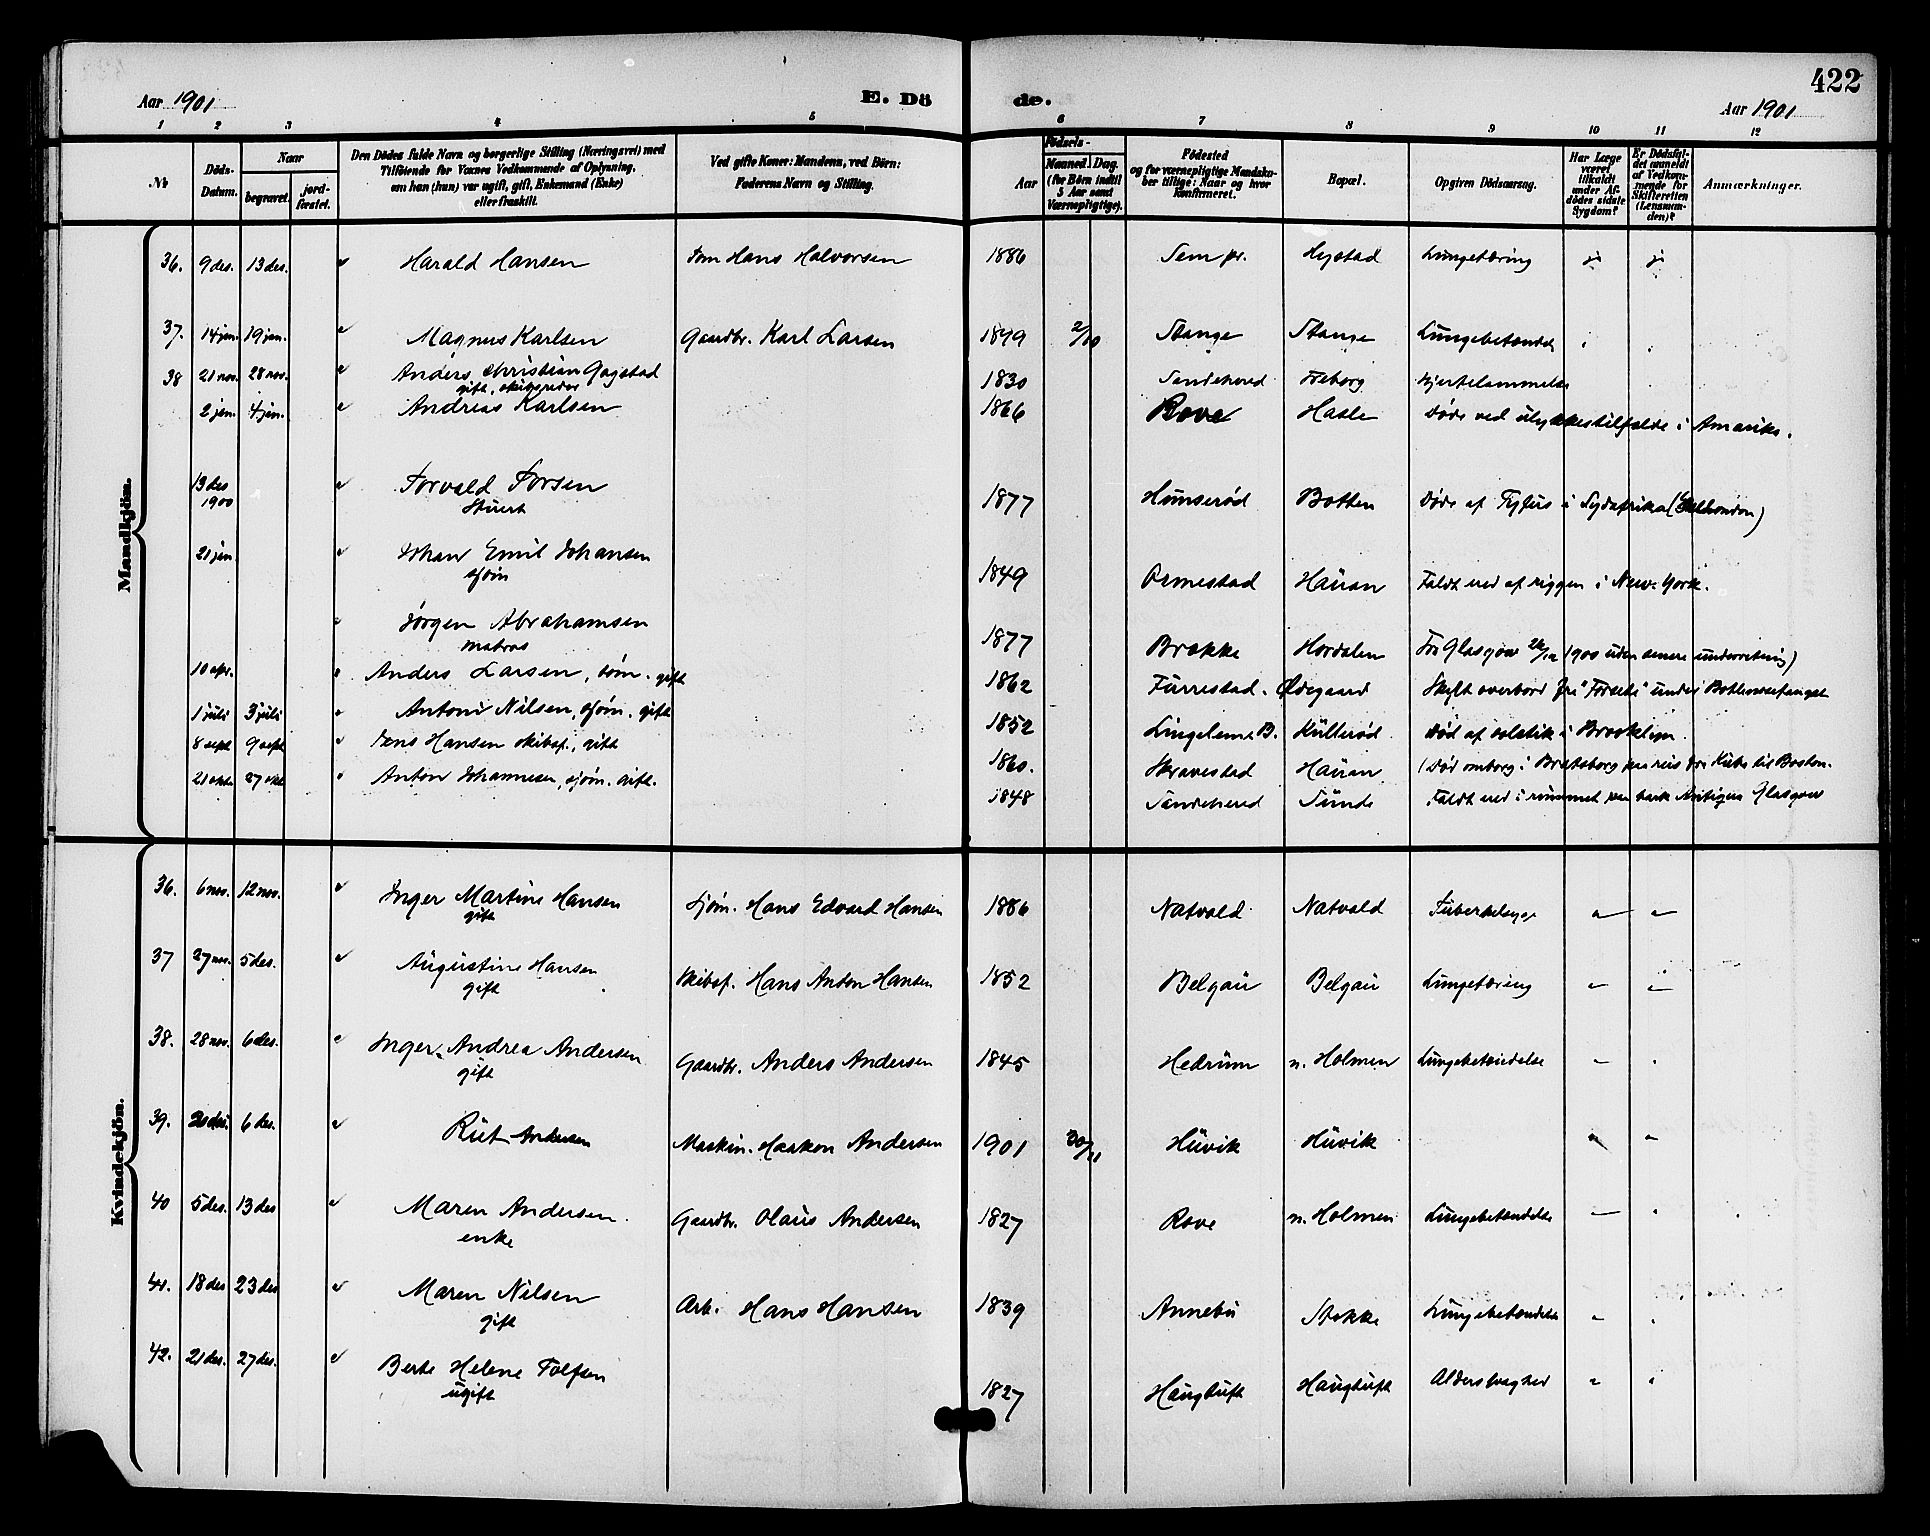 422
Aar 1901 E. Dö de. Aar 1901
1 2 3 4 5 6 7 8 9 10 11 12
№ Döds-Datum. Naar begravet. jord-fæstet. Den Dödes fulde Navn og borgerlige Stilling (Næringsvei) med Tilföiende for Voxnes Vedkommende af Oplysning, om han (hun) var ugift, gift, Enkemand (Enke) eller fraskilt. Ved gifte Koner: Mandens, ved Börn: Faderens Navn og Stilling. Födsels- Aar Maaned. Dag. (for Börn indtil 5 Aar samt Værnepligtige). Födested og for værnepligtige Mandska-ber tillige: Naar og hvor Konfirmeret. Bopæl. Opgiven Dödsaarsag. Har Læge været tilkaldt under Af-dödes sidste Sygdom? Er Dödsfal-det anmeldt af Vedkom-mende for Skifteretten (Lensman-den)? Anmærkninger.
Mandkjön.
36. 9 des. 13 des. Harald Hansen Hans Halvorsen 1886 Sem pr. Hystad Lungetæring ja ja
37. 14 jan. 19 jan. Magnus Karlsen Gaardbr. Karl Larsen 1899 2/10 Stange Stange Lungebetændelse
38 21 nov. 28 nov. Anders Christian Gogstad 1830 Sandeherred Freberg Hjertelammelse
gift, skibsreder
2 jan. 4 jan. Andreas Karlsen 1866 Rove Hasle Døde ved ulykkestilfælde i Amerika.
13 des 1900 Torvald Torsen 1877 Hunserød Botten Døde af Tyfus i Sydafrika
Stuert
21 jan Johan Emil Johansen 1849 Ormestad Hauan Faldt ned af riggen i New-York.
sjøm
Jørgen Abrahamsen 1877 Brække Hordalen Fra Glasgow 1900 uden senere underretning)
matros
10 apr. Anders Larsen, søm. gift 1862 Furrestad. Ødegaard Skylt overbord fra "Forseti" under Bottlenosefangst
1 juli 3 juli Anton Nilsen, sjøm. gift 1852 Lingelem B. Kullerød Død af solstik i Brooklyn.
8 sept 9 sept Jens Hansen skibsf., gift 1860. Skravestad Hauan (Død omborg i Bratsborg paa reis fra Kuba til Boston.
21 okt. 27 okt Anton Johannesen, sjøm. gift. 1848 Sandeherred Sunde Faldt ned i rummet paa bark Antigua Glasgow
Kvindekjön.
36. 6 nov. 12 nov. Inger Martine Hansen Sjøm. Hans Edvard Hansen 1886 Natvald Natvald
gift
37 27 nov. 5 des. Augustine Hansen Skibsf. Hans Anton Hansen 1852 Belgau Belgau Lungetæring
gift
38. 28 nov. 6 des. Inger Andrea Andersen Gaardbr. Anders Andersen 1845 Hedrum n. Holmen Lungebetændelse
gift
39. 6 des. Rut Andersen Maskin. Haakon Andersen 1901 30/11 Huvik Huvik
40 5 des. 13 des Maren Andersen Gaardbr. Olaus Andersen 1827 Rove n. Holmen Lungebetændelse
enke
41. 18 des 23 des Maren Nilsen Arb. Hans Hansen 1839 Annebu Stokke Lungebetændelse
gift
42. 21 des. 27 des. Berte Helene Tolfsen 1827 Haugtuft Haugtuft Alderssvaghed
ugift